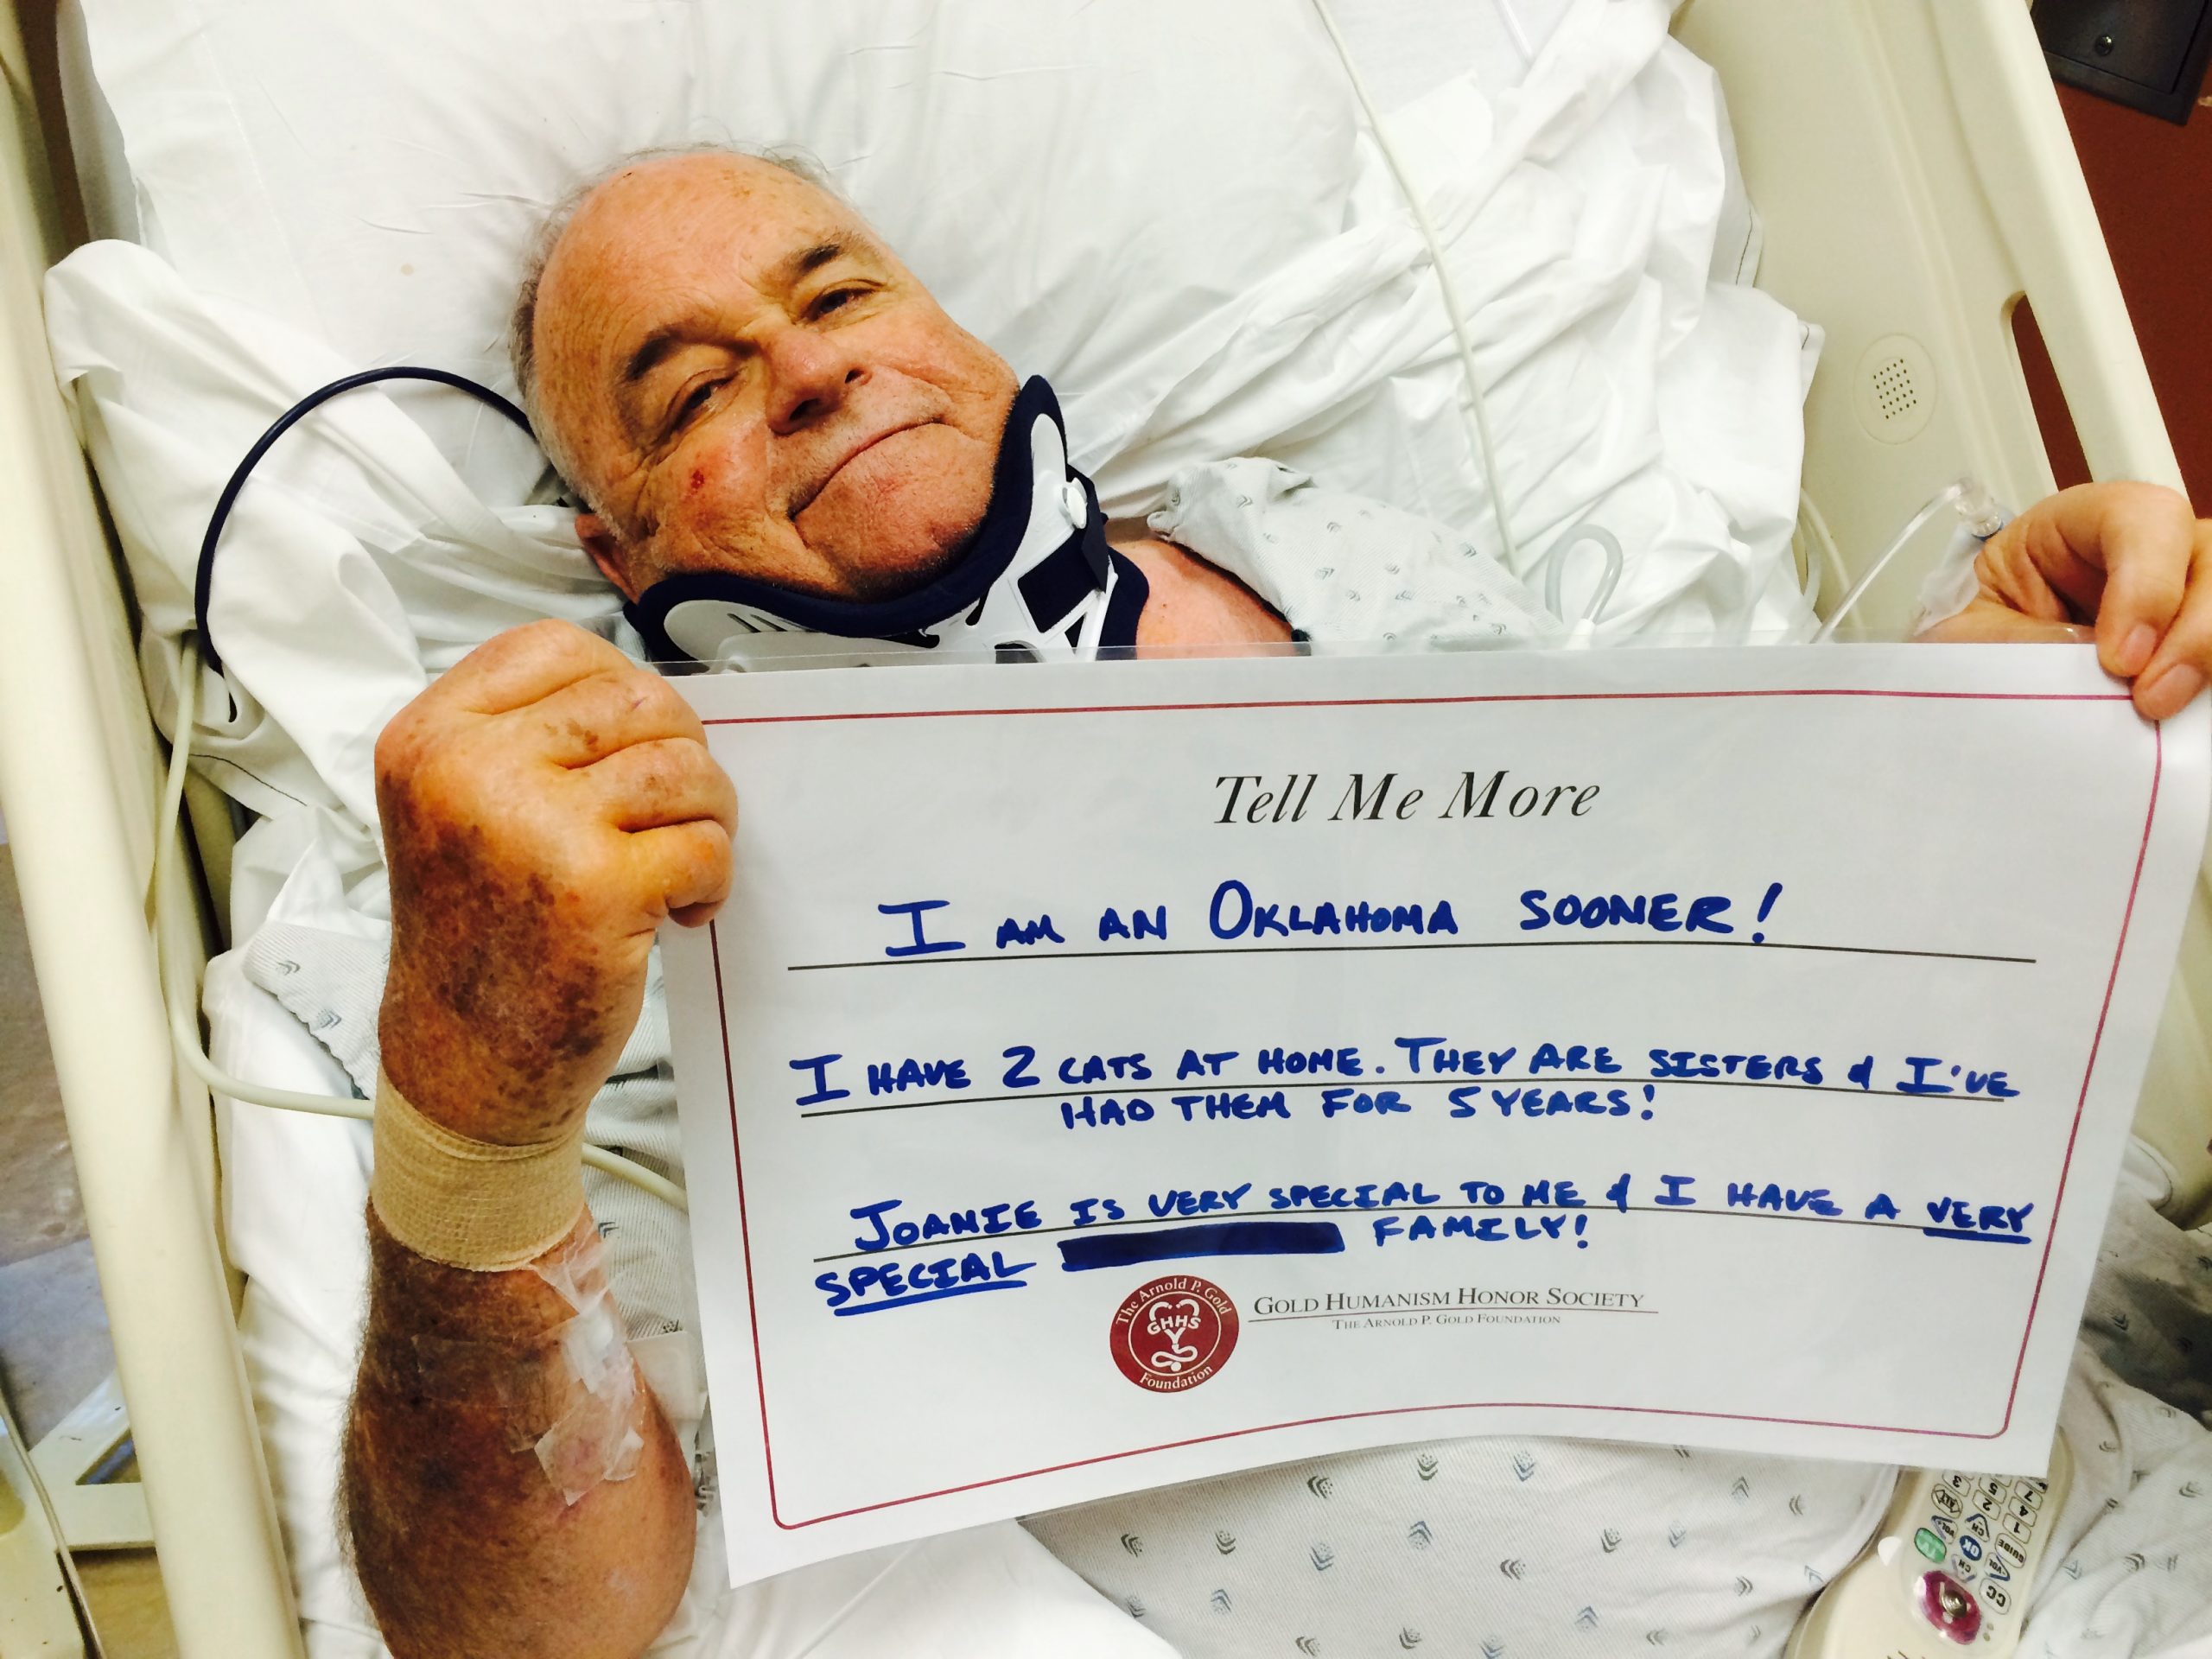 Tell Me More
I AM AN OKLAHOMA SOONER!
I HAVE 2 CATS AT HOME. THEY ARE SISTERS & I'VE
HAD THEM FOR 5 YEARS!
JOANIE IS VERY SPECIAL TO ME & I HAVE A VERY
SPECIAL FAMILY!
The Arnold P. Gold
GHHS
Foundation
GOLD HUMANISM HONOR SOCIETY
THE ARNOLD P. GOLD FOUNDATION